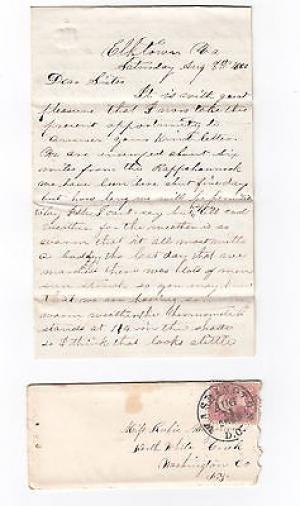 Elktown Va
Saturday Aug 8th
Dear Sister
It is with great
pleasure that I now take this
present opportunity to
answer your kind letter.
We are encamped about six
miles from the Rappahannock
we have been here about five days
but how long we will
stay I can't say but
weather for the weather is so
warm that it all most melts
a body the last day that we
marched there was lots of men
sun struck so you may
that we are having
warm weather the thermometer
stands at 114 in the shade
so I think that looks little
WASHINGTON
D.C.
Miss Katie
North White Creek
Washington Co
N.Y.